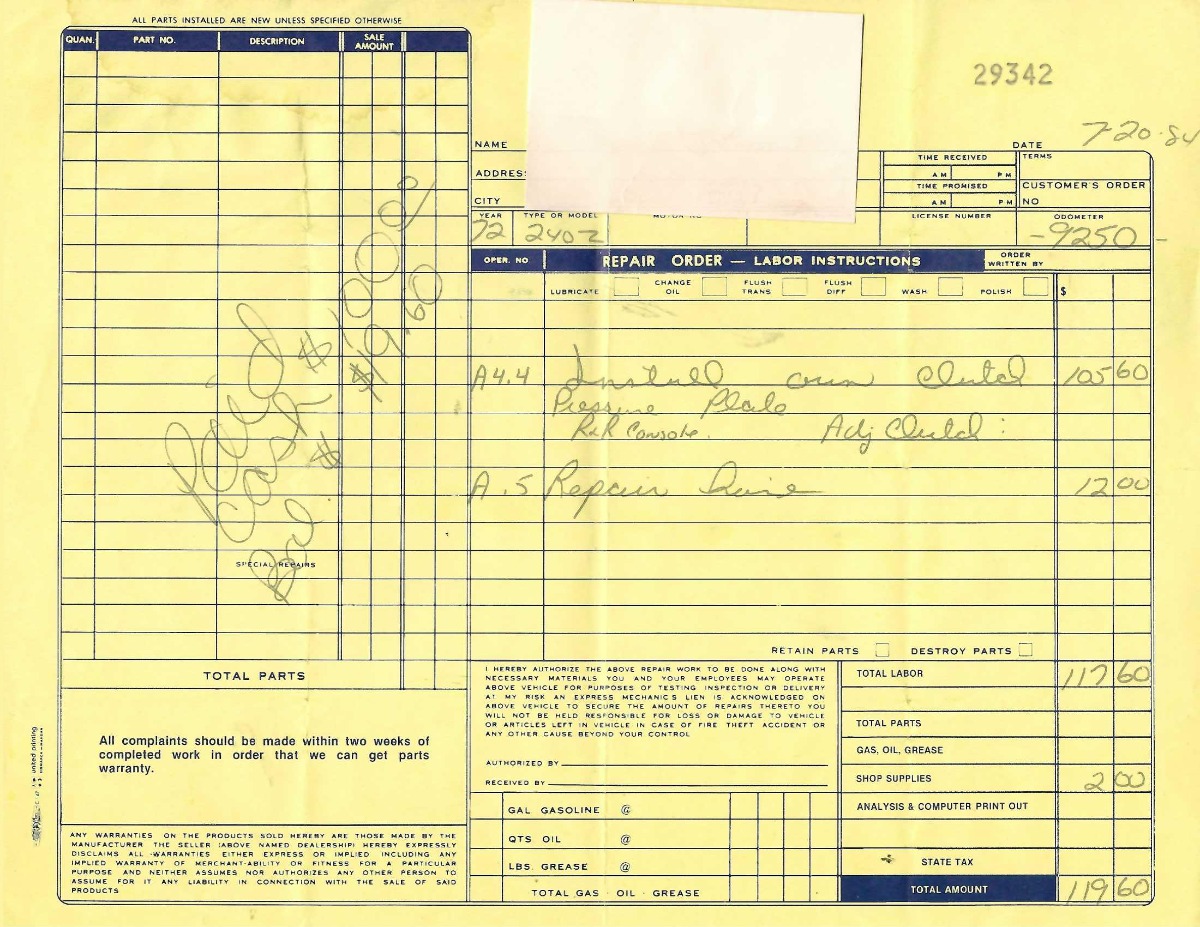 ALL PARTS INSTALLED ARE NEW UNLESS SPECIFIED OTHERWISE
QUAN. PART NO. DESCRIPTION SALE AMOUNT
29342
NAME
DATE 7-20-84
ADDRES
CITY
TIME RECEIVED
AM PM
TIME PROMISED
AM PM
TERMS
CUSTOMER'S ORDER
NO
YEAR TYPE OR MODEL LICENSE NUMBER ODOMETER
72 240Z -9250-
OPER. NO REPAIR ORDER — LABOR INSTRUCTIONS ORDER WRITTEN BY
LUBRICATE CHANGE OIL FLUSH TRANS FLUSH DIFF WASH POLISH $
A4.4 Install own Clutch 105 60
Pressure Plate
R&R Console. Adj Clutch :
A .5 Repair 12 00
Paid
Cash $ 100 00
Bal. $ $19.60
SPECIAL REPAIRS
RETAIN PARTS DESTROY PARTS
TOTAL PARTS
All complaints should be made within two weeks of
completed work in order that we can get parts
warranty.
ANY WARRANTIES ON THE PRODUCTS SOLD HEREBY ARE THOSE MADE BY THE
MANUFACTURER THE SELLER (ABOVE NAMED DEALERSHIP) HEREBY EXPRESSLY
DISCLAIMS ALL WARRANTIES EITHER EXPRESS OR IMPLIED INCLUDING ANY
IMPLIED WARRANTY OF MERCHANT-ABILITY OR FITNESS FOR A PARTICULAR
PURPOSE AND NEITHER ASSUMES NOR AUTHORIZES ANY OTHER PERSON TO
ASSUME FOR IT ANY LIABILITY IN CONNECTION WITH THE SALE OF SAID
PRODUCTS
united printing
I HEREBY AUTHORIZE THE ABOVE REPAIR WORK TO BE DONE ALONG WITH
NECESSARY MATERIALS YOU AND YOUR EMPLOYEES MAY OPERATE
ABOVE VEHICLE FOR PURPOSES OF TESTING INSPECTION OR DELIVERY
AT MY RISK AN EXPRESS MECHANIC'S LIEN IS ACKNOWLEDGED ON
ABOVE VEHICLE TO SECURE THE AMOUNT OF REPAIRS THERETO YOU
WILL NOT BE HELD RESPONSIBLE FOR LOSS OR DAMAGE TO VEHICLE
OR ARTICLES LEFT IN VEHICLE IN CASE OF FIRE THEFT ACCIDENT OR
ANY OTHER CAUSE BEYOND YOUR CONTROL
AUTHORIZED BY
RECEIVED BY
GAL GASOLINE @
QTS OIL @
LBS. GREASE @
TOTAL GAS - OIL - GREASE
TOTAL LABOR 117 60
TOTAL PARTS
GAS, OIL, GREASE
SHOP SUPPLIES 2 00
ANALYSIS & COMPUTER PRINT OUT
STATE TAX
TOTAL AMOUNT 119 60